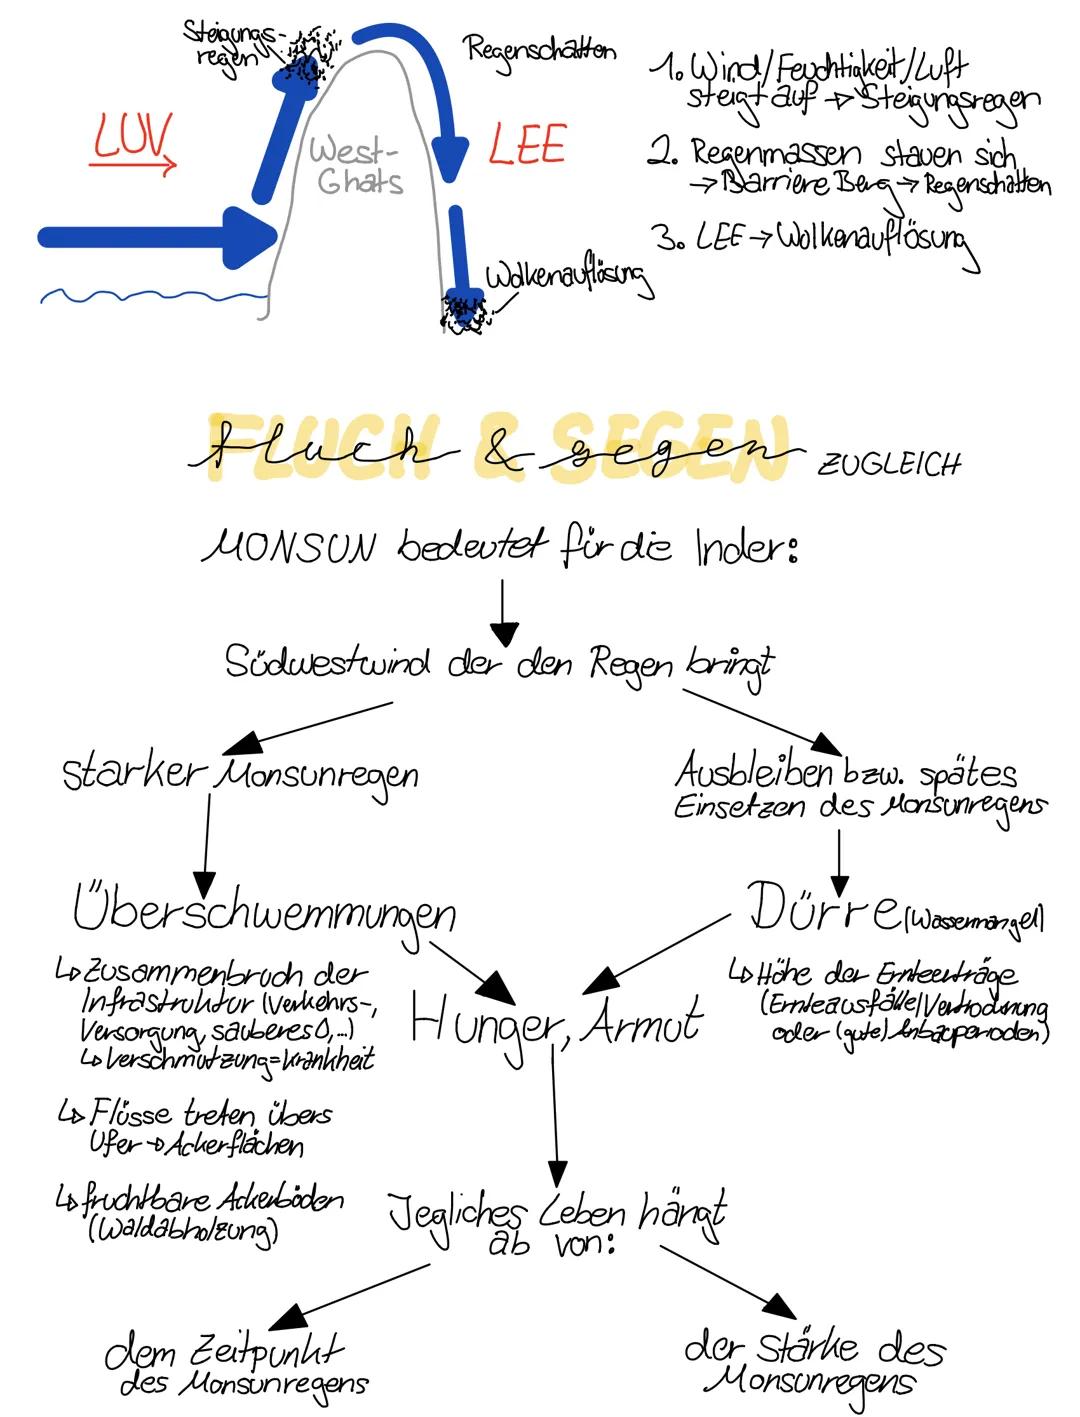 Steigungs-
regen
Regenschatten
LUV
LEE
West-
Ghats
Wolkenauflösung
1. Wind/Feuchtigkeit/Luft
steigt auf → Steigungsregen
2. Regenmassen stauen sich
→ Barriere Berg → Regenschatten
3. LEE → Wolkenauflösung
FLUCH & SEGEN
fluch & segen ZUGLEICH
MONSUN bedeutet für die Inder:
Südwestwind der den Regen bringt
starker Monsunregen
Ausbleiben bzw. spätes
Einsetzen des Monsunregens
Überschwemmungen
Dürre (Wassermangel)
↳ Zusammenbruch der
Infrastruktur (Verkehrs-,
Versorgung, sauberes 💧,...)
↳ Verschmutzung = Krankheit
↳ Flüsse treten übers
Ufer → Ackerflächen
↳ fruchtbare Ackerböden
(Waldabholzung)
Hunger, Armut
↳ Höhe der Ernteerträge
(Ernteausfälle/Vertrocknung
oder (gute) Anbauperioden)
Jegliches Leben hängt
ab von:
dem Zeitpunkt
des Monsunregens
der Stärke des
Monsunregens